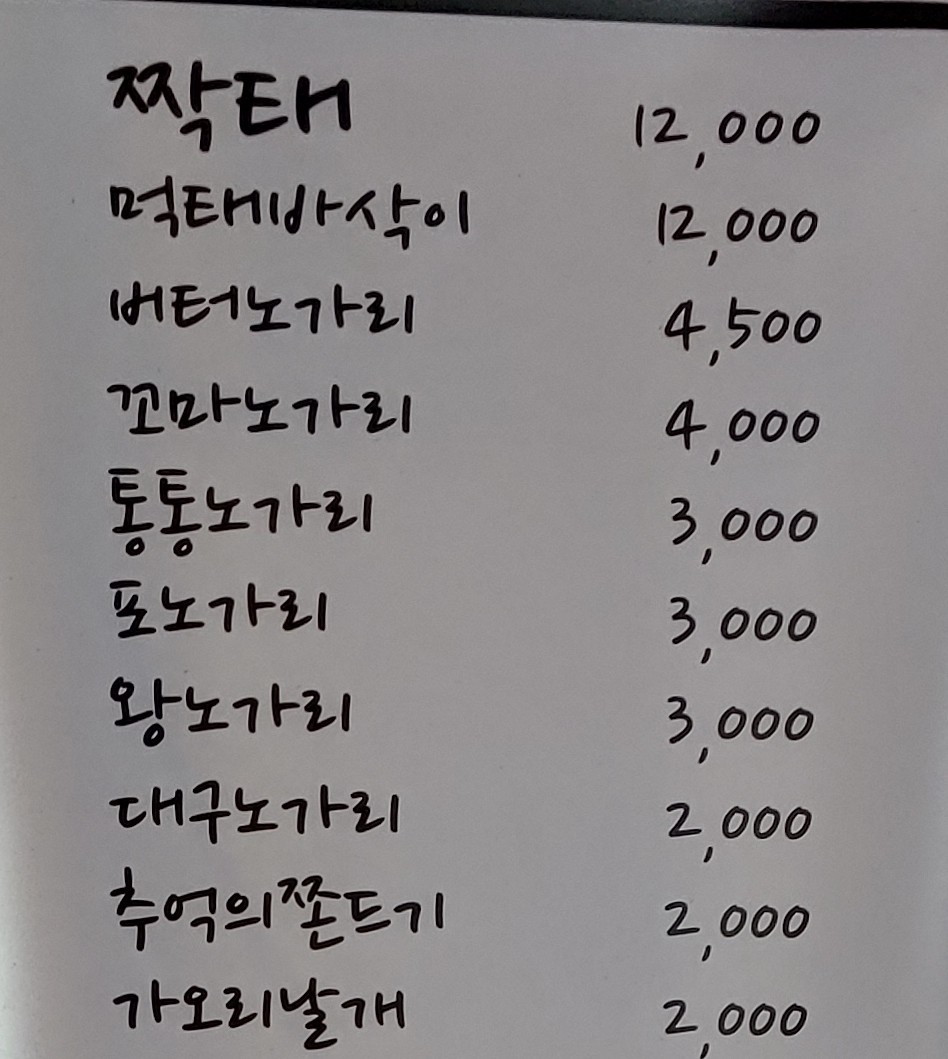 짝태 12,000
먹태바삭이 12,000
버터노가리 4,500
꼬마노가리 4,000
통통노가리 3,000
포노가리 3,000
왕노가리 3,000
대구노가리 2,000
추억의쫀드기 2,000
가오리날개 2,000